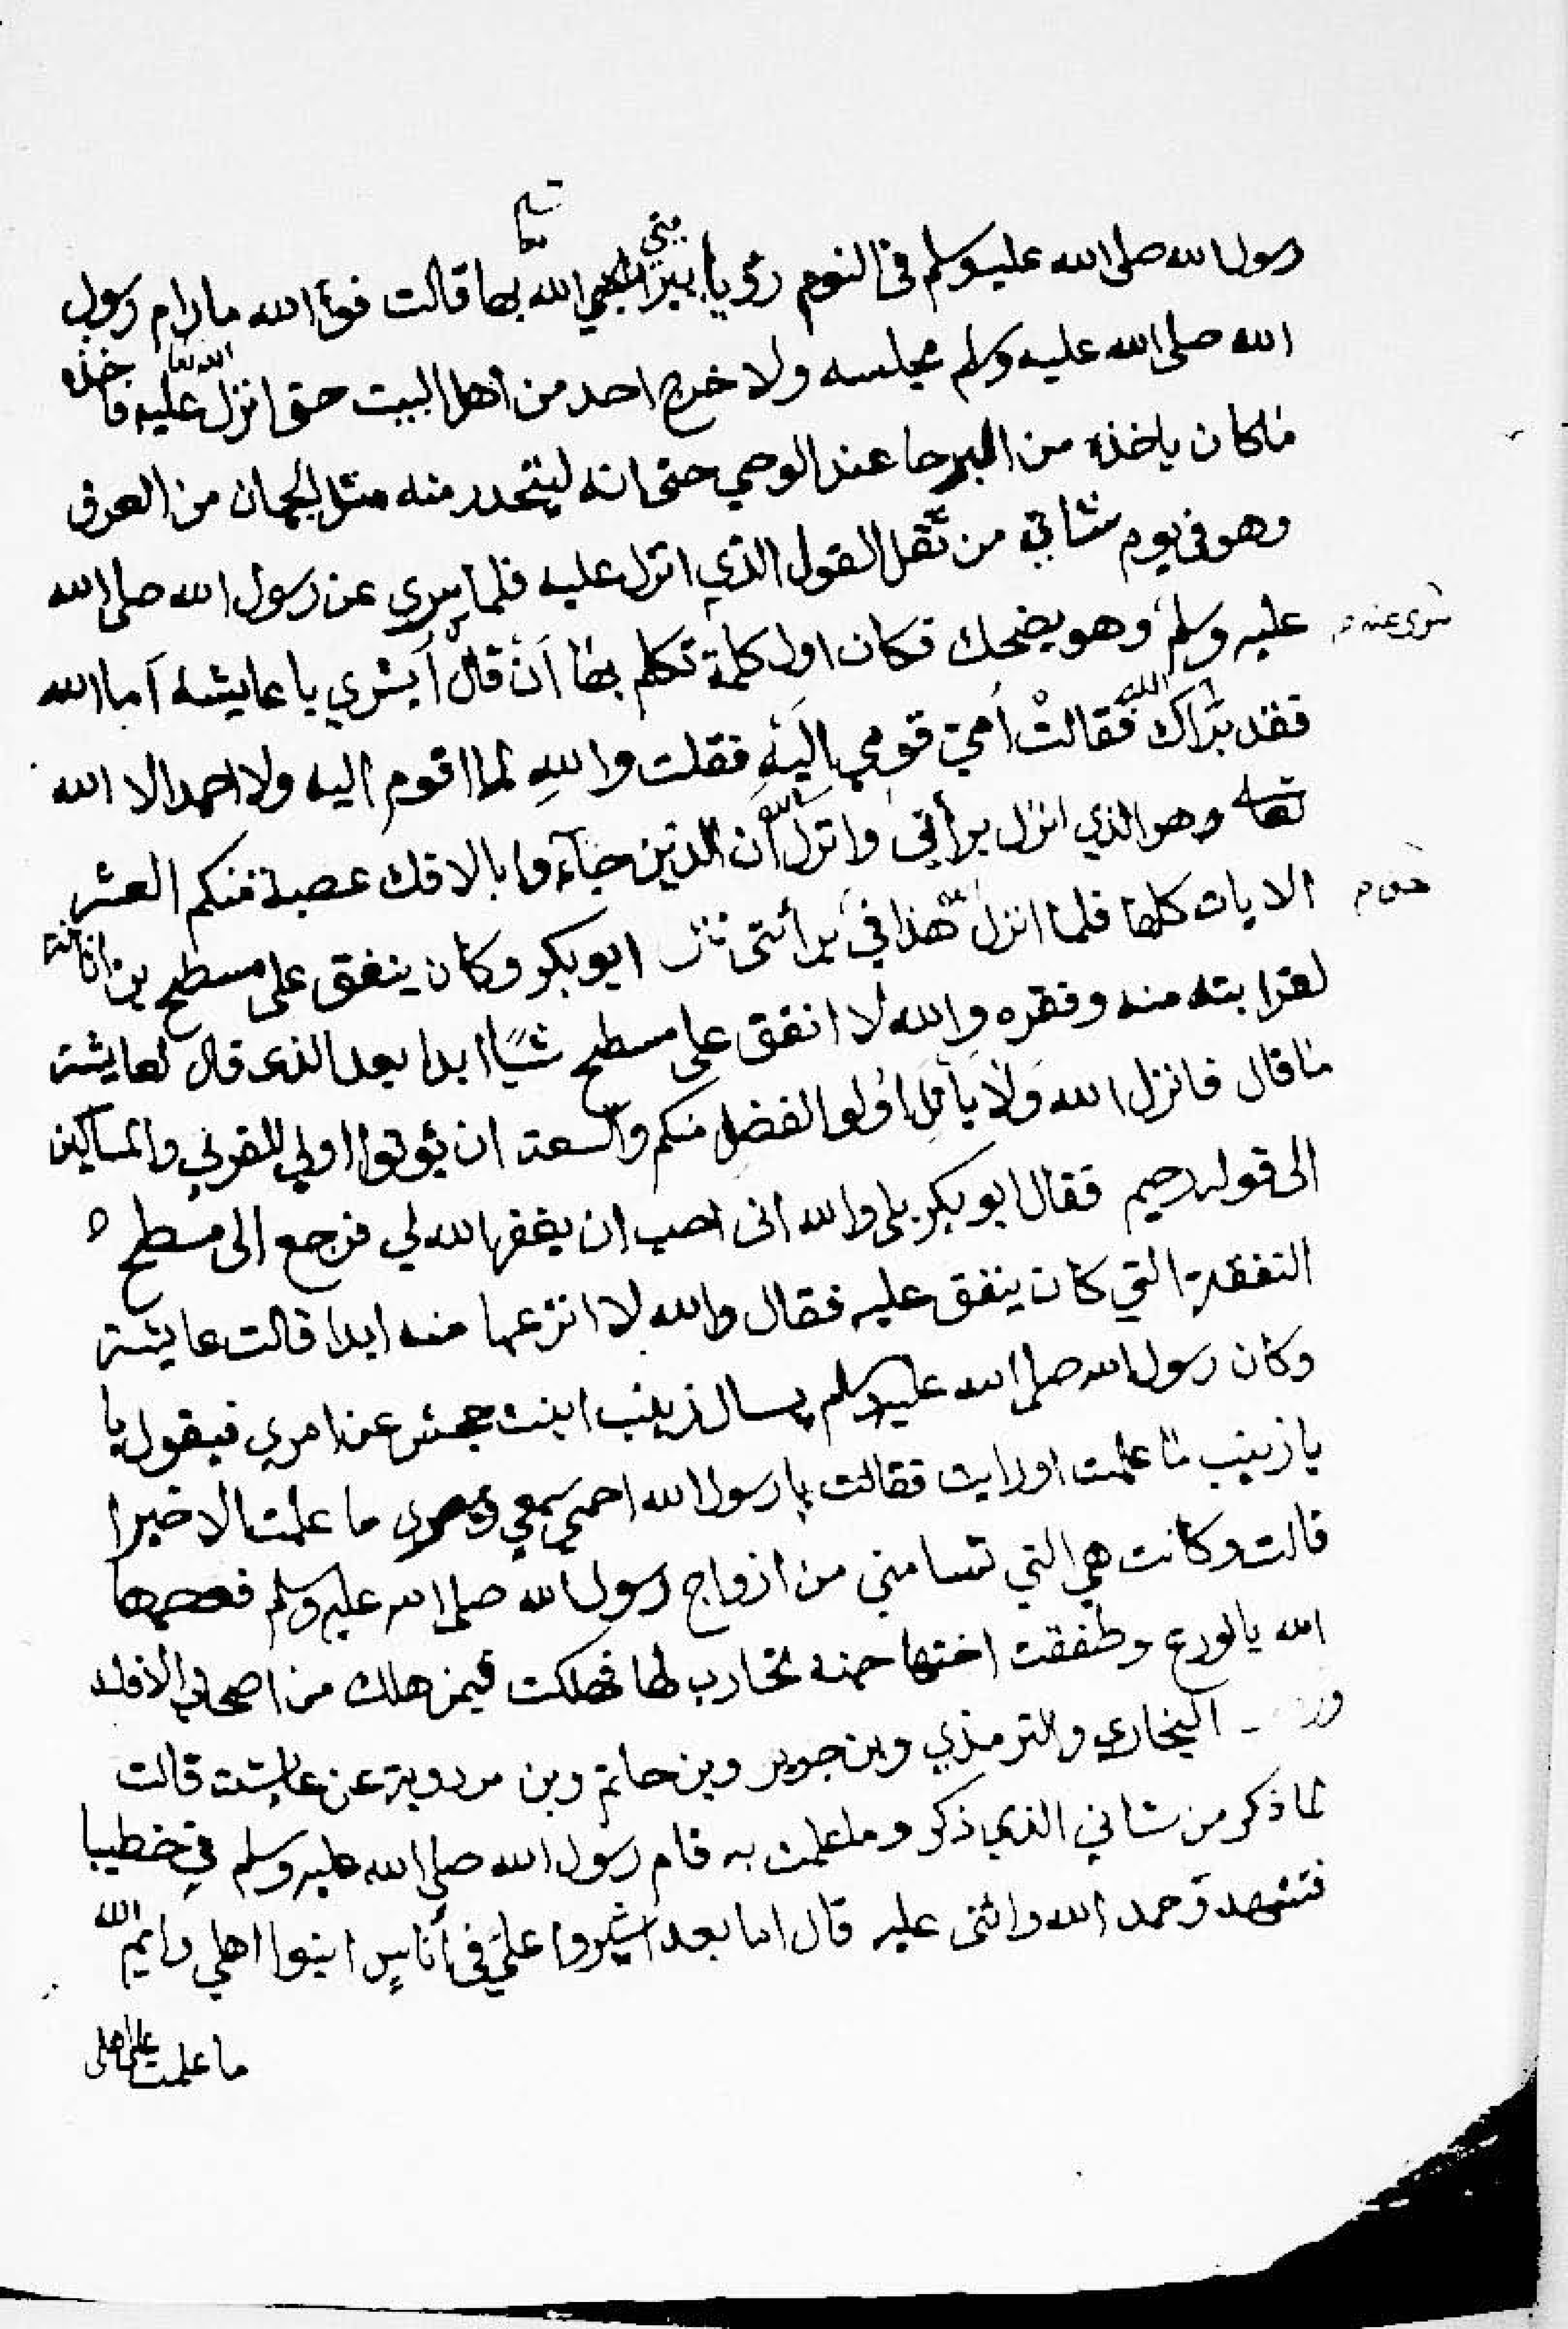 رسول الله صلى الله عليه وسلم في النوم رؤيا يبرأني الله بها قالت فوالله مارام رسول
الله صلى الله عليه وسلم مجلسه ولا خرج احد من اهل البيت حتى انزل الله عليه فاخذه
ماكان ياخذه من البرحا عند الوحي حتى انه ليتحدر منه مثل الجمان من العرق
وهو في يوم شاتي من ثقل القول الذي انزل عليه فلما سري عن رسول الله صلى الله
سرى عنه م
عليه وسلم وهو يضحك فكان اول كلمة تكلم بها أن قال أبشري يا عايشه أما الله
فقد براك الله فقالت أمي قومي إليه فقلت والله لما اقوم اليه ولا احمد الا الله
تعالى وهو الذي انزل برأتي وانزل الله أن الذين جآءوا بالافك عصبة منكم العشر
الايات كلها فلما انزل هذا في برأتى ابو بكر وكان ينفق على مسطح بن اثاثة
لقرابته منه وفقره والله لا انفق على مسطح شيًا ابدا بعد الذى قال لعايشة
ماقال فانزل الله ولا يأتل اولو الفضل منكم والسعة ان يؤتوا اولي القربي والمساكين
الى قوله رحيم فقال ابو بكر بلى والله انى احب ان يغفر الله لي فرجع الى مسطح ه
النفقة التي كان ينفق عليه فقال والله لا انزعها منه ابدا قالت عايشة
وكان رسول الله صلى الله عليه وسلم يسال زينب ابنت جحش عن امري فيقول يا
يا زينب ما علمت اورايت فقالت يا رسول الله احمي سمعي وبصرى ما علمت الا خيرا
قالت وكانت هي التي تسامني من ازواج رسول الله صلى الله عليه وسلم فعصمها
الله بالورع وطفقت اختها حمنه تحارب لها فهلكت فيمن هلك من اصحاب الافك
البخاري والترمذي وبن جرير وبن حاتم وبن مردوية عن عايشة قالت
لما ذكر من شاني الذي ذكر وما علمت به قام رسول الله صلى الله عليه وسلم في خطيبا
فتشهد وحمد الله واثنى عليه قال اما بعد اشيروا علي في أناس ابنوا اهلي وايم الله
ما علمت على اهلى